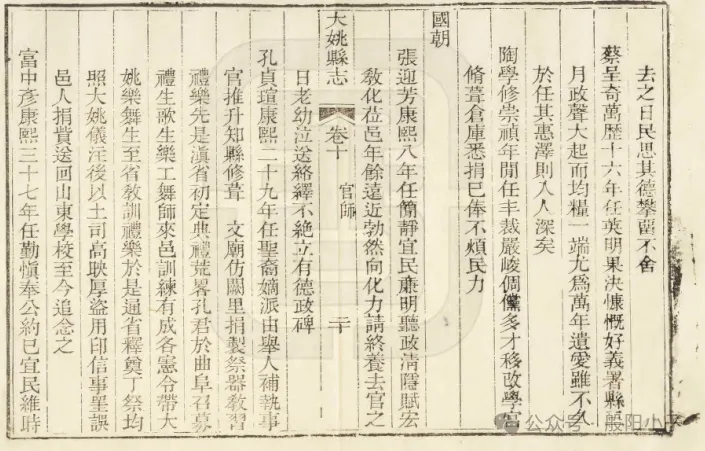 去之日民思其德攀畱不舍
蔡呈奇萬歷十六年任英明果決慷慨好義署縣
月政聲大起而均糧一端尤爲萬年遺愛雖不久
於任其惠澤則入人深矣
陶學修崇禎年閒任丰裁嚴峻倜儻多才移改學宮
脩葺倉庫悉捐已俸不煩民力
國朝
張迎芳康熙八年任簡靜宜民亷明聽政清隱賦宏
敎化蒞邑年餘遠近勃然向化力請終養去官之
大姚縣志 卷十 官師 二十
日老幼泣送絡繹不絶立有德政碑
孔貞瑄康熙二十九年任聖裔嫡派由舉人補執事
官推升知縣修葺 文廟仿闕里捐製祭器敎習
禮樂先是滇省初定典禮荒畧孔君於曲阜召募
禮生歌生樂工舞師來邑訓練有成各憲令帶大
姚樂舞生至省敎訓禮樂於是通省釋奠丁祭均
照大姚儀注後以土司高映厚盜用印信事罣誤
邑人捐貲送回山東學校至今追念之
富中彥康熙三十七年任勤愼奉公約已宜民維時
公众号 · 般阳小子